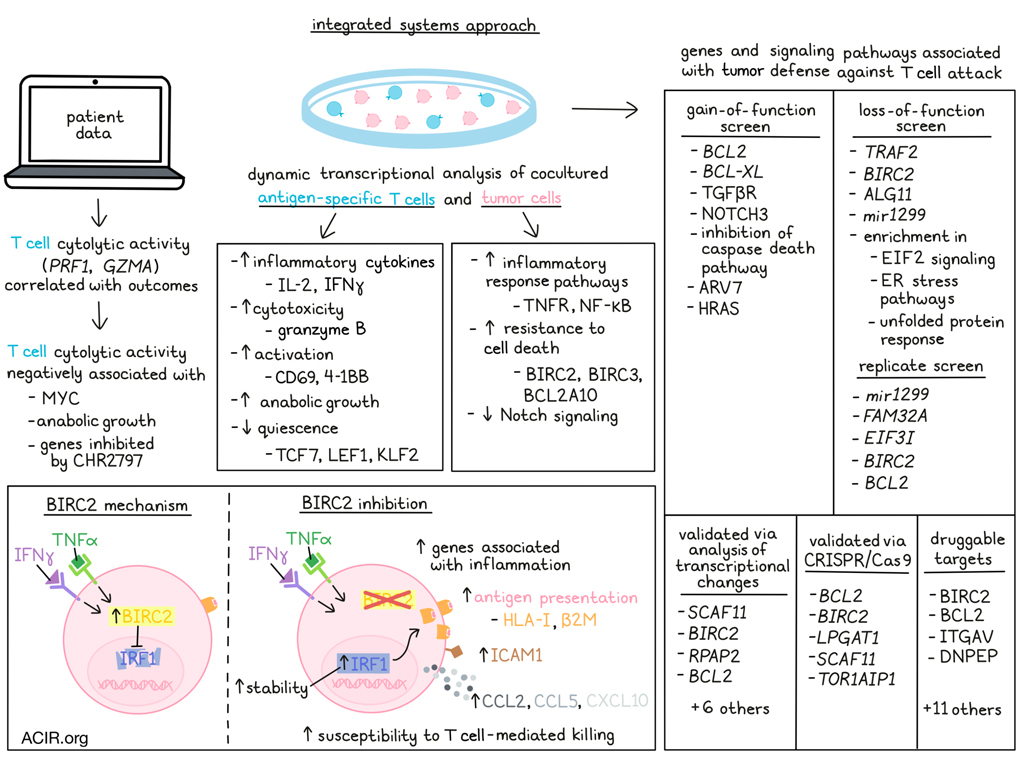 integrated systems approach
patient
data
T cell cytolytic activity
(PRF1, GZMA)
correlated with outcomes
T cell cytolytic activity
negatively associated with
- MYC
-anabolic growth
- genes inhibited
by CHR2797
dynamic transcriptional analysis of cocultured
antigen-specific T cells and tumor cells
-↑inflammatory cytokines
- IL-2, IFNγ
-↑cytotoxicity
- granzyme B
-↑activation
- CD69, 4-1BB
-↑ anabolic growth
-↓ quiescence
- TCF7, LEF1, KLF2
-↑ inflammatory
response pathways
- TNFR, NF-κB
-↑ resistance to
cell death
- BIRC2, BIRC3,
BCL2A10
-↓ Notch signaling
genes and signaling pathways associated
with tumor defense against T cell attack
gain-of-function
screen
- BCL2
- BCL-XL
- TGFβR
- NOTCH3
- inhibition of
caspase death
pathway
- ARV7
- HRAS
loss-of-function
screen
- TRAF2
- BIRC2
- ALG11
- mir1299
- enrichment in
- EIF2 signaling
- ER stress
pathways
- unfolded protein
response
replicate screen
- mir1299
- FAM32A
- EIF3I
- BIRC2
- BCL2
validated via
analysis of
transcriptional
changes
- SCAF11
- BIRC2
- RPAP2
- BCL2
+6 others
validated via
CRISPR/Cas9
- BCL2
- BIRC2
- LPGAT1
-SCAF11
-TOR1AIP1
druggable
targets
- BIRC2
- BCL2
-ITGAV
-DNPEP
+11 others
BIRC2 mechanism
TNFα
IFNγ
↑BIRC2
IRF1
ACIR.org
BIRC2 inhibition
TNFα
IFNγ
BIRC2
↑IRF1
↑stability
↑ genes associated
with inflammation
↑antigen presentation
- HLA-I, β2M
↑ICAM1
↑CCL2, CCL5, CXCL10
↑ susceptibility to T cell-mediated killing